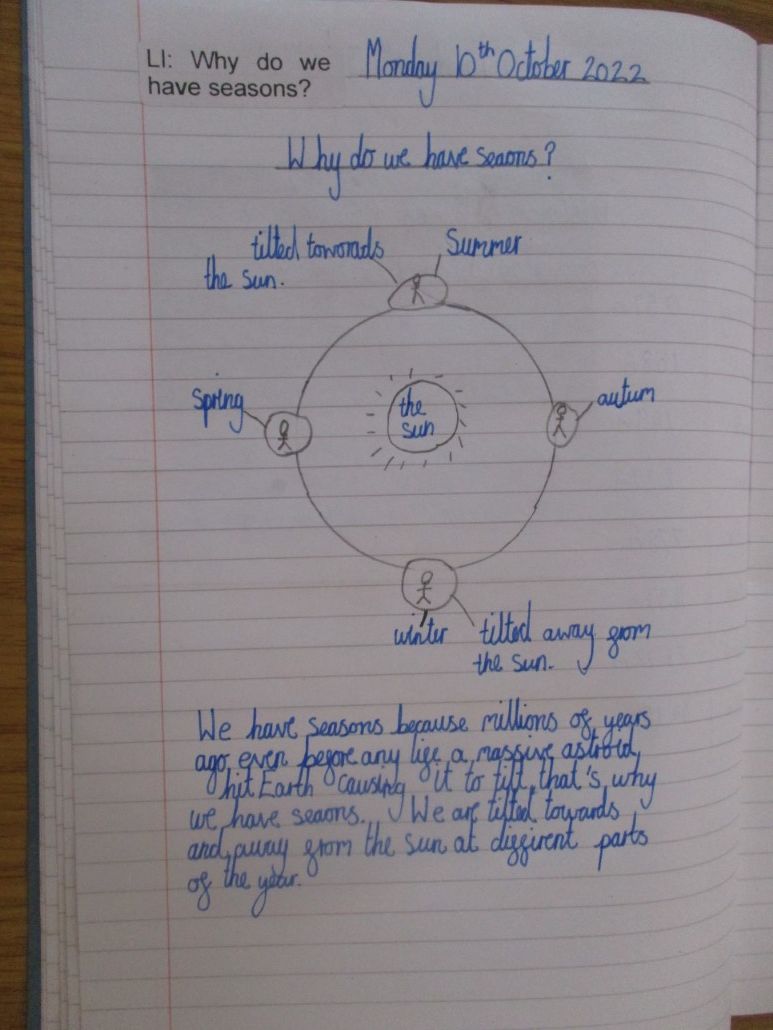 LI: Why do we have seasons?
Monday 10th October 2022
Why do we have seaons?
tilted toworads
the sun.
Summer
spring
the
sun
autum
winter
tilted away from
the sun.
We have seasons because millions of years
ago, even before any life a massive astroid,
hit Earth causing it to tilt, that's why
we have seaons. We are tilted towards
and away from the sun at diffirent parts
of the year.